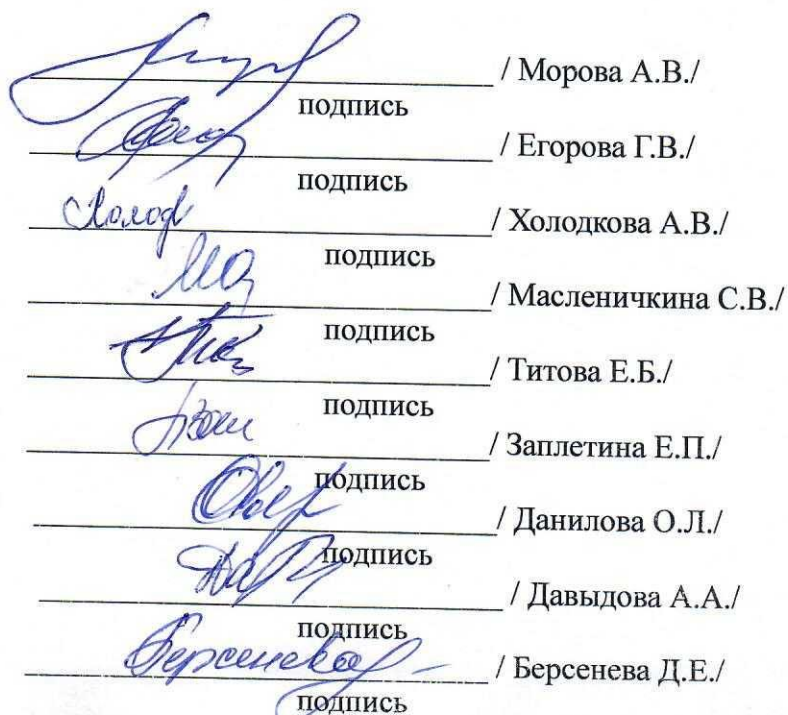 / Морова А.В./
подпись
/ Егорова Г.В./
подпись
Холод / Холодкова А.В./
подпись
/ Масленичкина С.В./
подпись
/ Титова Е.Б./
подпись
/ Заплетина Е.П./
подпись
/ Данилова О.Л./
подпись
/ Давыдова А.А./
подпись
Берсенева / Берсенева Д.Е./
подпись